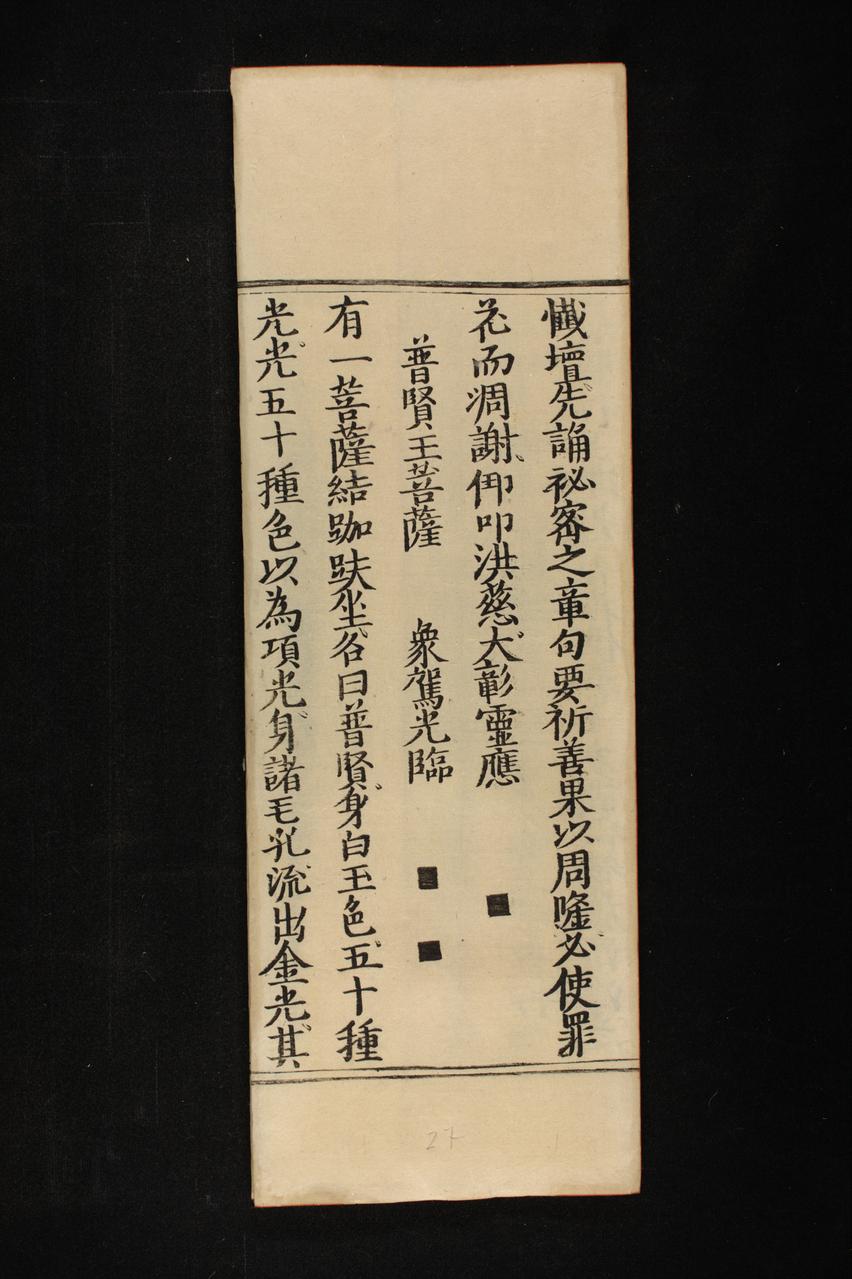 懺壇先誦祕宻之章句要祈善果以周隆必使罪
花而凋謝仰叩洪慈大彰靈應 ■
普賢王菩薩 衆駕光臨 ■ ■
有一菩薩結跏趺坐名曰普賢身白玉色五十種
光光五十種色以為項光身諸毛孔流出金光其
27